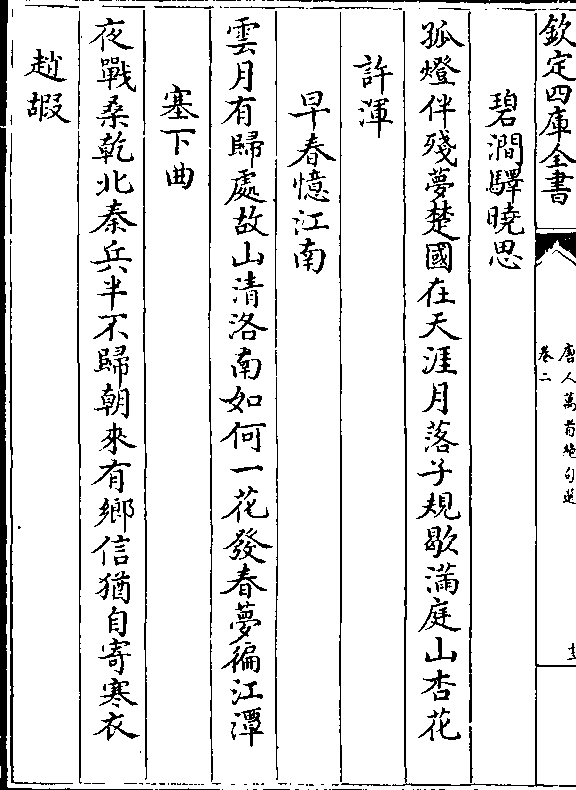 欽定四庫全書
唐人萬首絶句選
卷二
碧澗驛曉思
孤燈伴殘夢楚國在天涯月落子規歇滿庭山杏花
許渾
早春憶江南
雲月有歸處故山清洛南如何一花發春夢徧江潭
塞下曲
夜戰桑乾北秦兵半不歸朝來有鄉信猶自寄寒衣
趙嘏